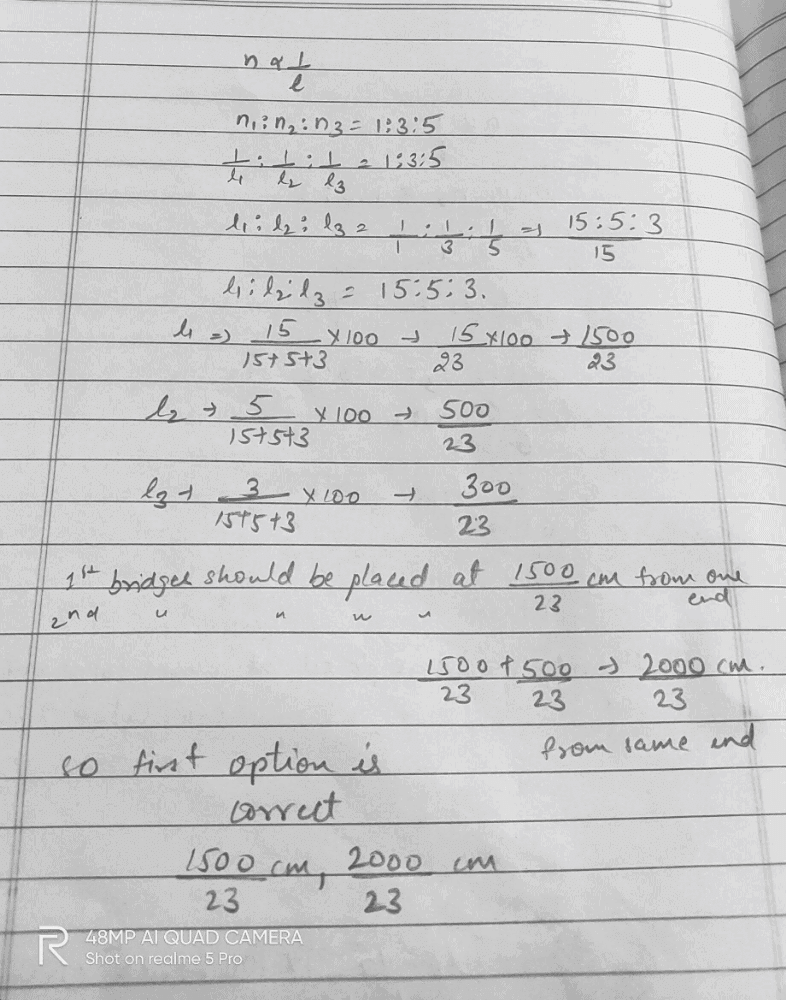 n ∝ 1/l
n₁:n₂:n₃ = 1:3:5
1/l₁ : 1/l₂ : 1/l₃ = 1:3:5
l₁:l₂:l₃ = 1/1 : 1/3 : 1/5 ⇒ 15:5:3/15
l₁:l₂:l₃ = 15:5:3.
l₁ ⇒ 15/15+5+3 ×100 → 15×100/23 → 1500/23
l₂ → 5/15+5+3 ×100 → 500/23
l₃ → 3/15+5+3 ×100 → 300/23
1st bridges should be placed at 1500/23 cm from one end
2nd " " " "
1500/23 + 500/23 → 2000/23 cm.
from same end
so first option is
correct
1500/23 cm, 2000/23 cm
48MP AI QUAD CAMERA
Shot on realme 5 Pro